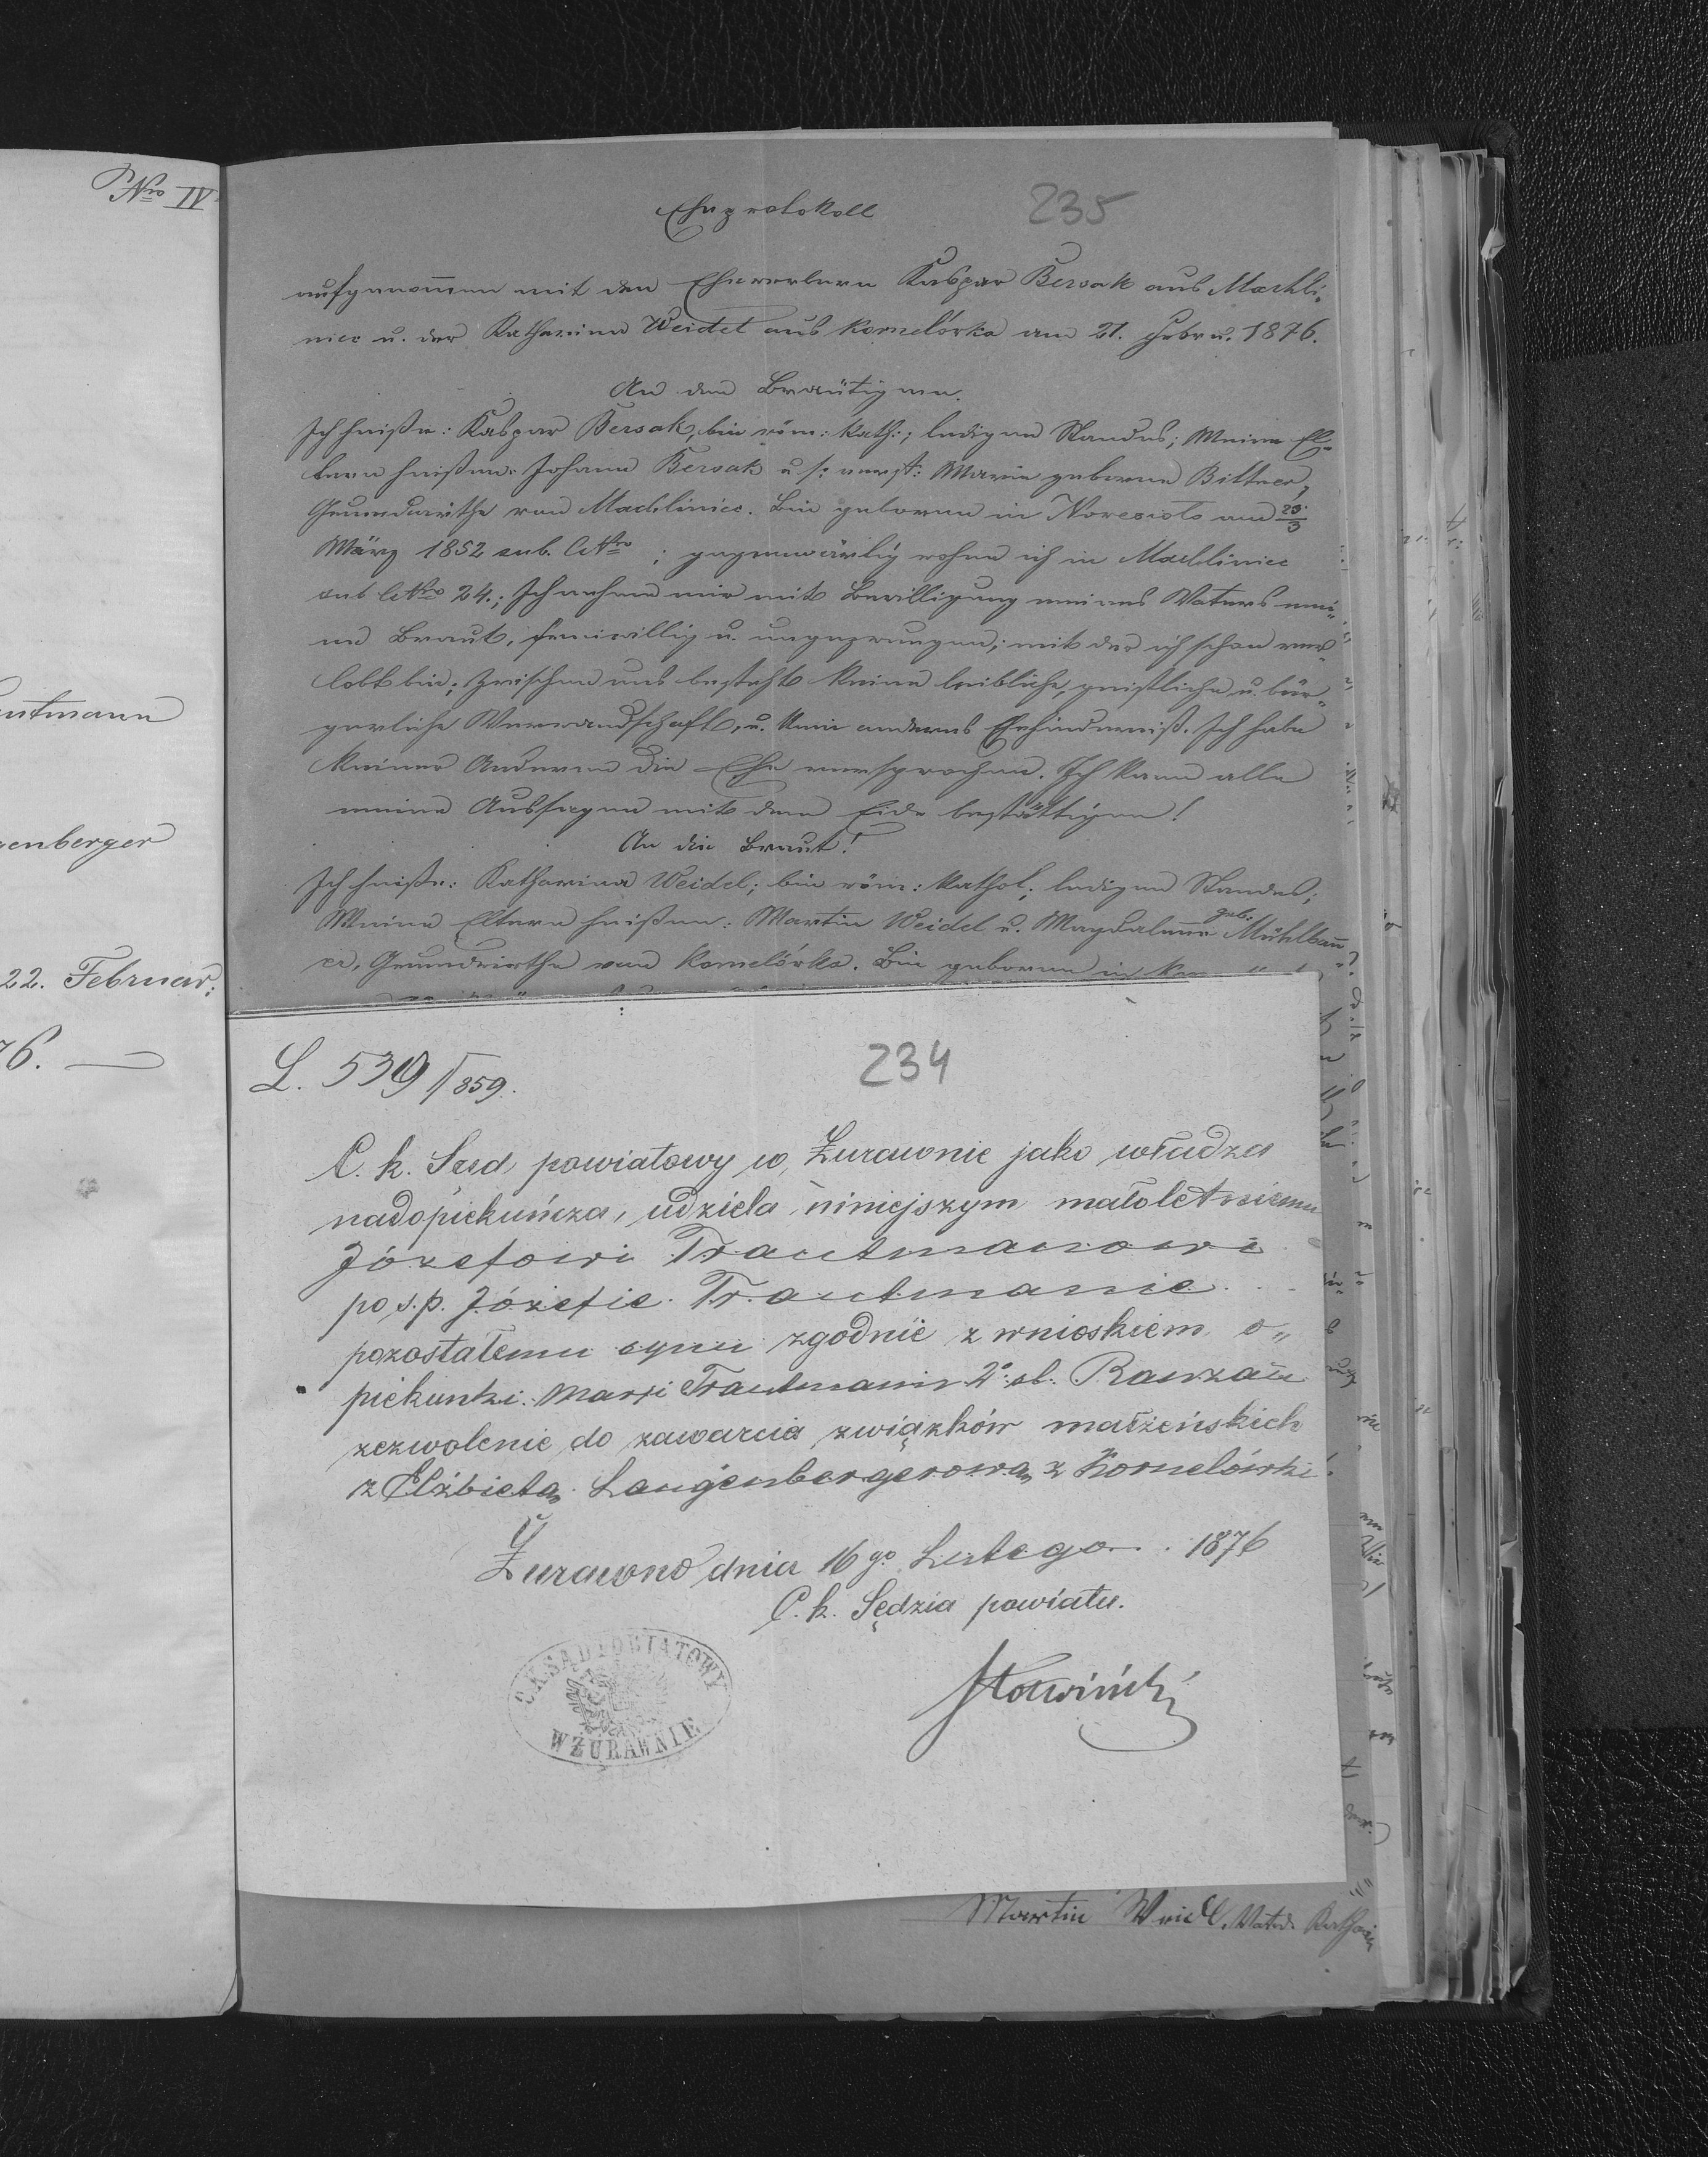 Nro IV
utmann
enberger
22. Februar;
76. —
Eheprotokoll
235
aufgenommen mit den Ehewerbern Kaspar Bersak aus Machli„
niec u. der Katharina Weidel aus Kornelówka am 21. Febru. 1876.
An den Bräutigam.
Ich heiße: Kaspar Bersak, bin röm: kath:; ledigen Standes; Meine El„
tern heißen: Johann Bersak u. verst: Marie geborene Bittner,
Grundwirthe von Machliniec. Bin geboren in am
März 1852 sub. CNro ; gegenwärtig wohne ich in Machliniec
sub CNro 24.; Ich nehme mir mit Bewilligung meines Vaters mei„
ne Braut, freiwillig u. ungezwungen; mit der ich schon ver„
lobt bin; zwischen uns besteht keine leibliche, geistliche u. bür„
gerliche Verwandschaft, u. kein anderes Ehehinderniß. Ich habe
keiner Anderen die Ehe versprochen. Ich kann alle
meine Aussagen mit dem Eide bestättigen!
An die Braut!
Ich heiße: Katharina Weidel; bin röm: kathol; ledigen Standes;
Meine Eltern heißen: Martin Weidel u. Magdalena geb. Mühlbau„
er, Grundwirthe von Kornelówka. Bin geboren in
L. 539/1859.
234
C. k. Sąd powiatowy w Żurawnie jako władza
nadopiekuńcza, udziela niniejszym małoletniemu
Józefowi Trautmanowi
po ś.p. Józefie Trautmanie
pozostałemu synu zgodnie z wnioskiem o„
piekunki Maryi Trautmanin 2º śl.
zezwolenie do zawarcia związków małżeńskich
z Elżbietą Langenbergerową z Kornelówki.
Żurawno dnia 16go Lutego 1876
C. k. Sędzia powiatu.
C.K. SĄD POWIATOWY
W ŻURAWNIE
Martin Weidl, Vater